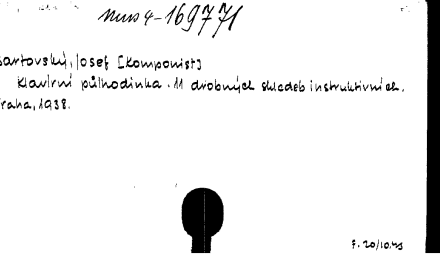 mus 4-169771
artovský, Josef [Komponist]
Klavírní půlhodinka. 11 drobných skladeb instruktivních.
raha, 1938.
F. 20/10.43